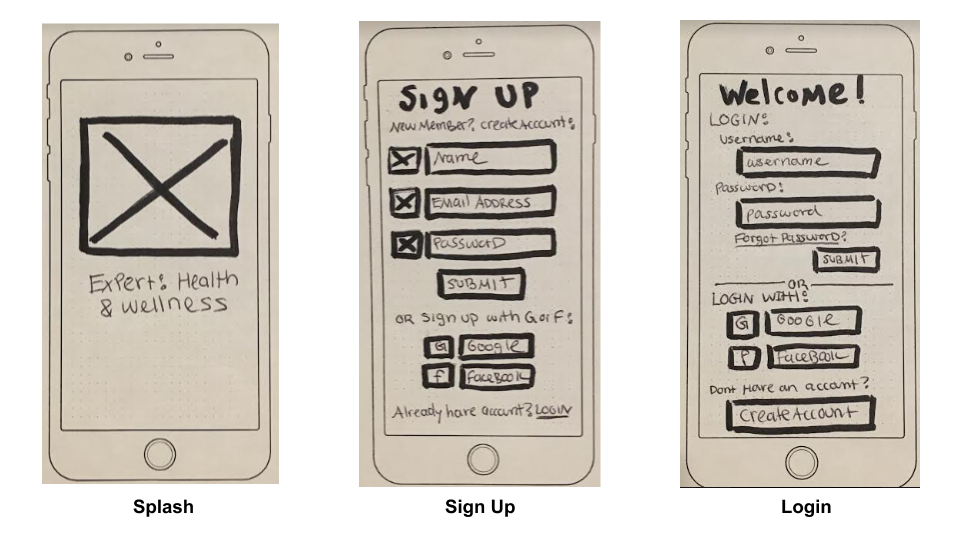 Expert: Health
& wellness
Splash
SIGN UP
New Member? create Account:
Name
EMail ADDRESS
PASSWORD
SUBMIT
OR Sign up with G or F:
G
Google
f
FaceBook
Already have account? LOGIN
Sign Up
Welcome!
LOGIN:
username:
username
PassworD:
password
Forgot PassworD?
SUBMIT
OR
LOGIN WITH:
G
GOOGLE
FaceBook
Dont Have an account?
Create Account
Login